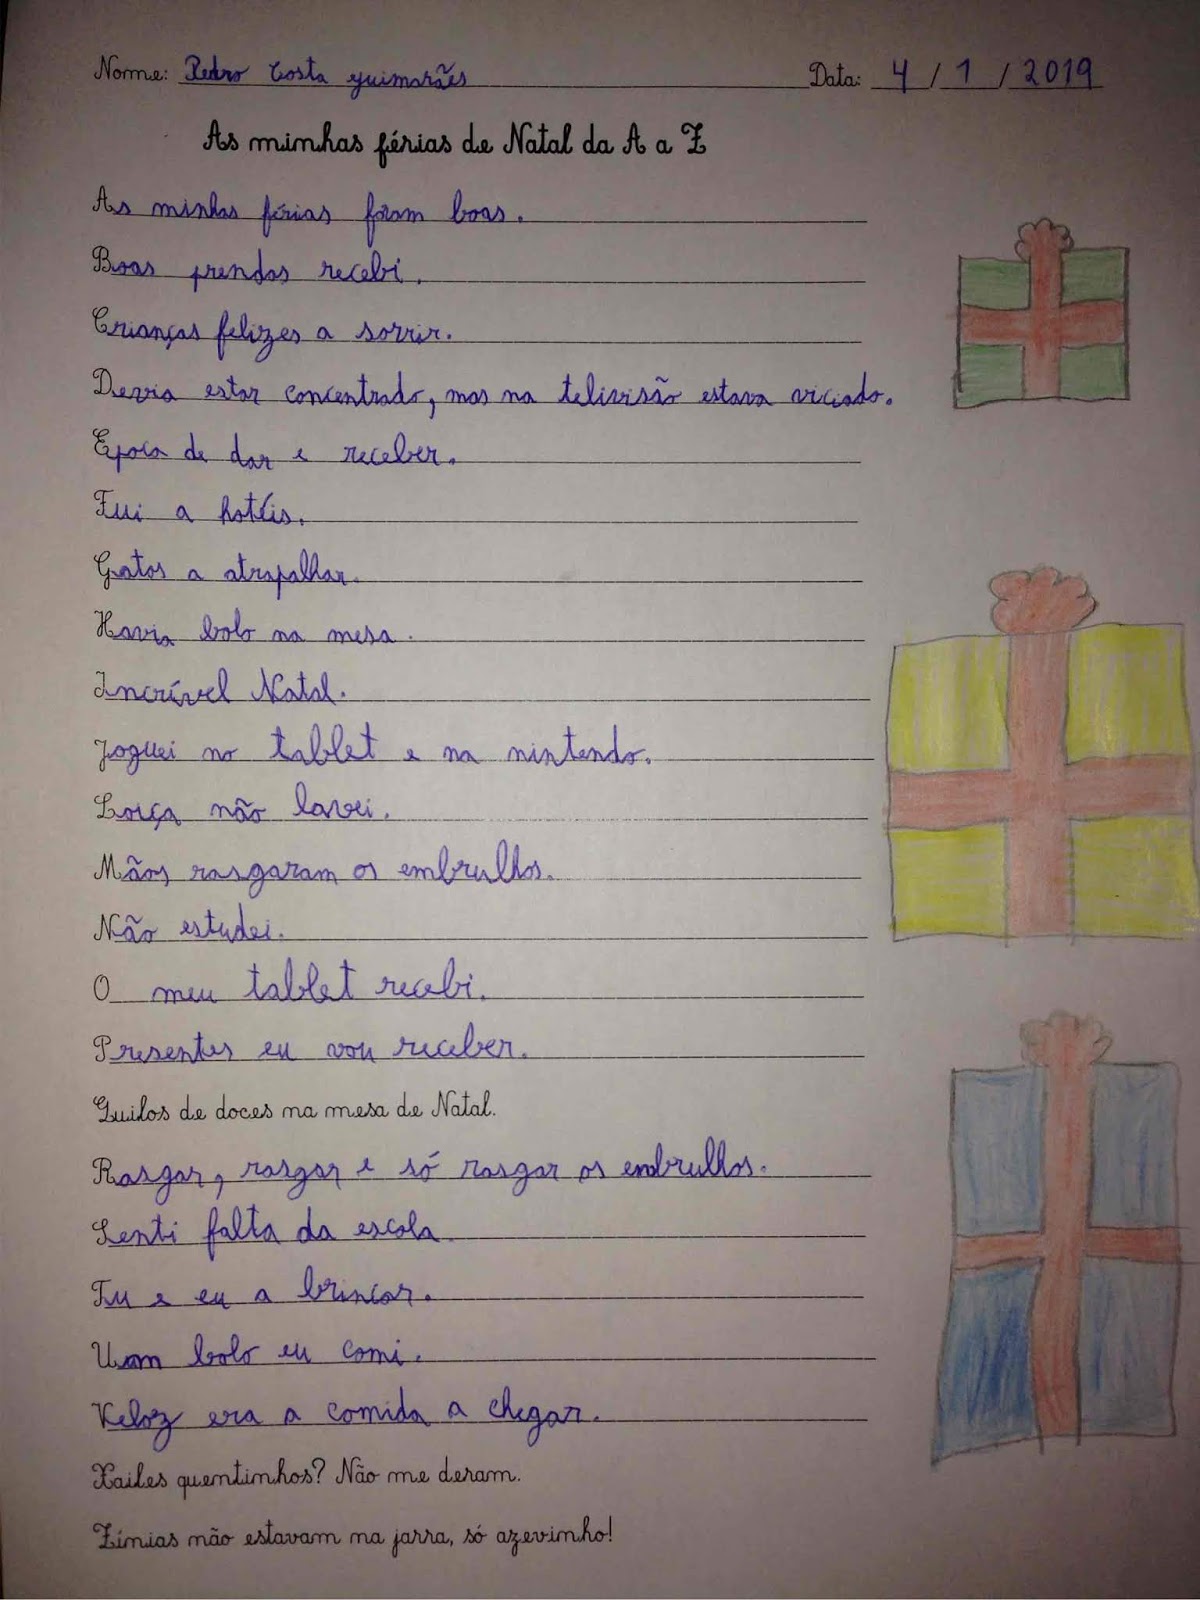 Nome: Pedro Costa Guimarães Data: 4 / 1 / 2019
As minhas férias de Natal da A a Z
As minhas férias foram boas.
Boas prendas recebi.
Crianças felizes a sorrir.
Devia estar concentrado, mas na telivisão estava viciado.
Epoca de dar e receber.
Fui a hotéis.
Gatos a atrapalhar.
Havia bolo na mesa.
Incrível Natal.
Joguei no tablet e na nintendo.
Loiça não lavei.
Mãos rasgaram os embrulhos.
Não estudei.
O meu tablet recebi.
Presentes eu vou receber.
Quilos de doces na mesa de Natal.
Rasgar, rasgar e só rasgar os embrulhos.
Senti falta da escola
Tu e eu a brincar.
Um bolo eu comi.
Veloz era a comida a chegar.
Xailes quentinhos? Não me deram.
Zínias não estavam na jarra, só azevinho!